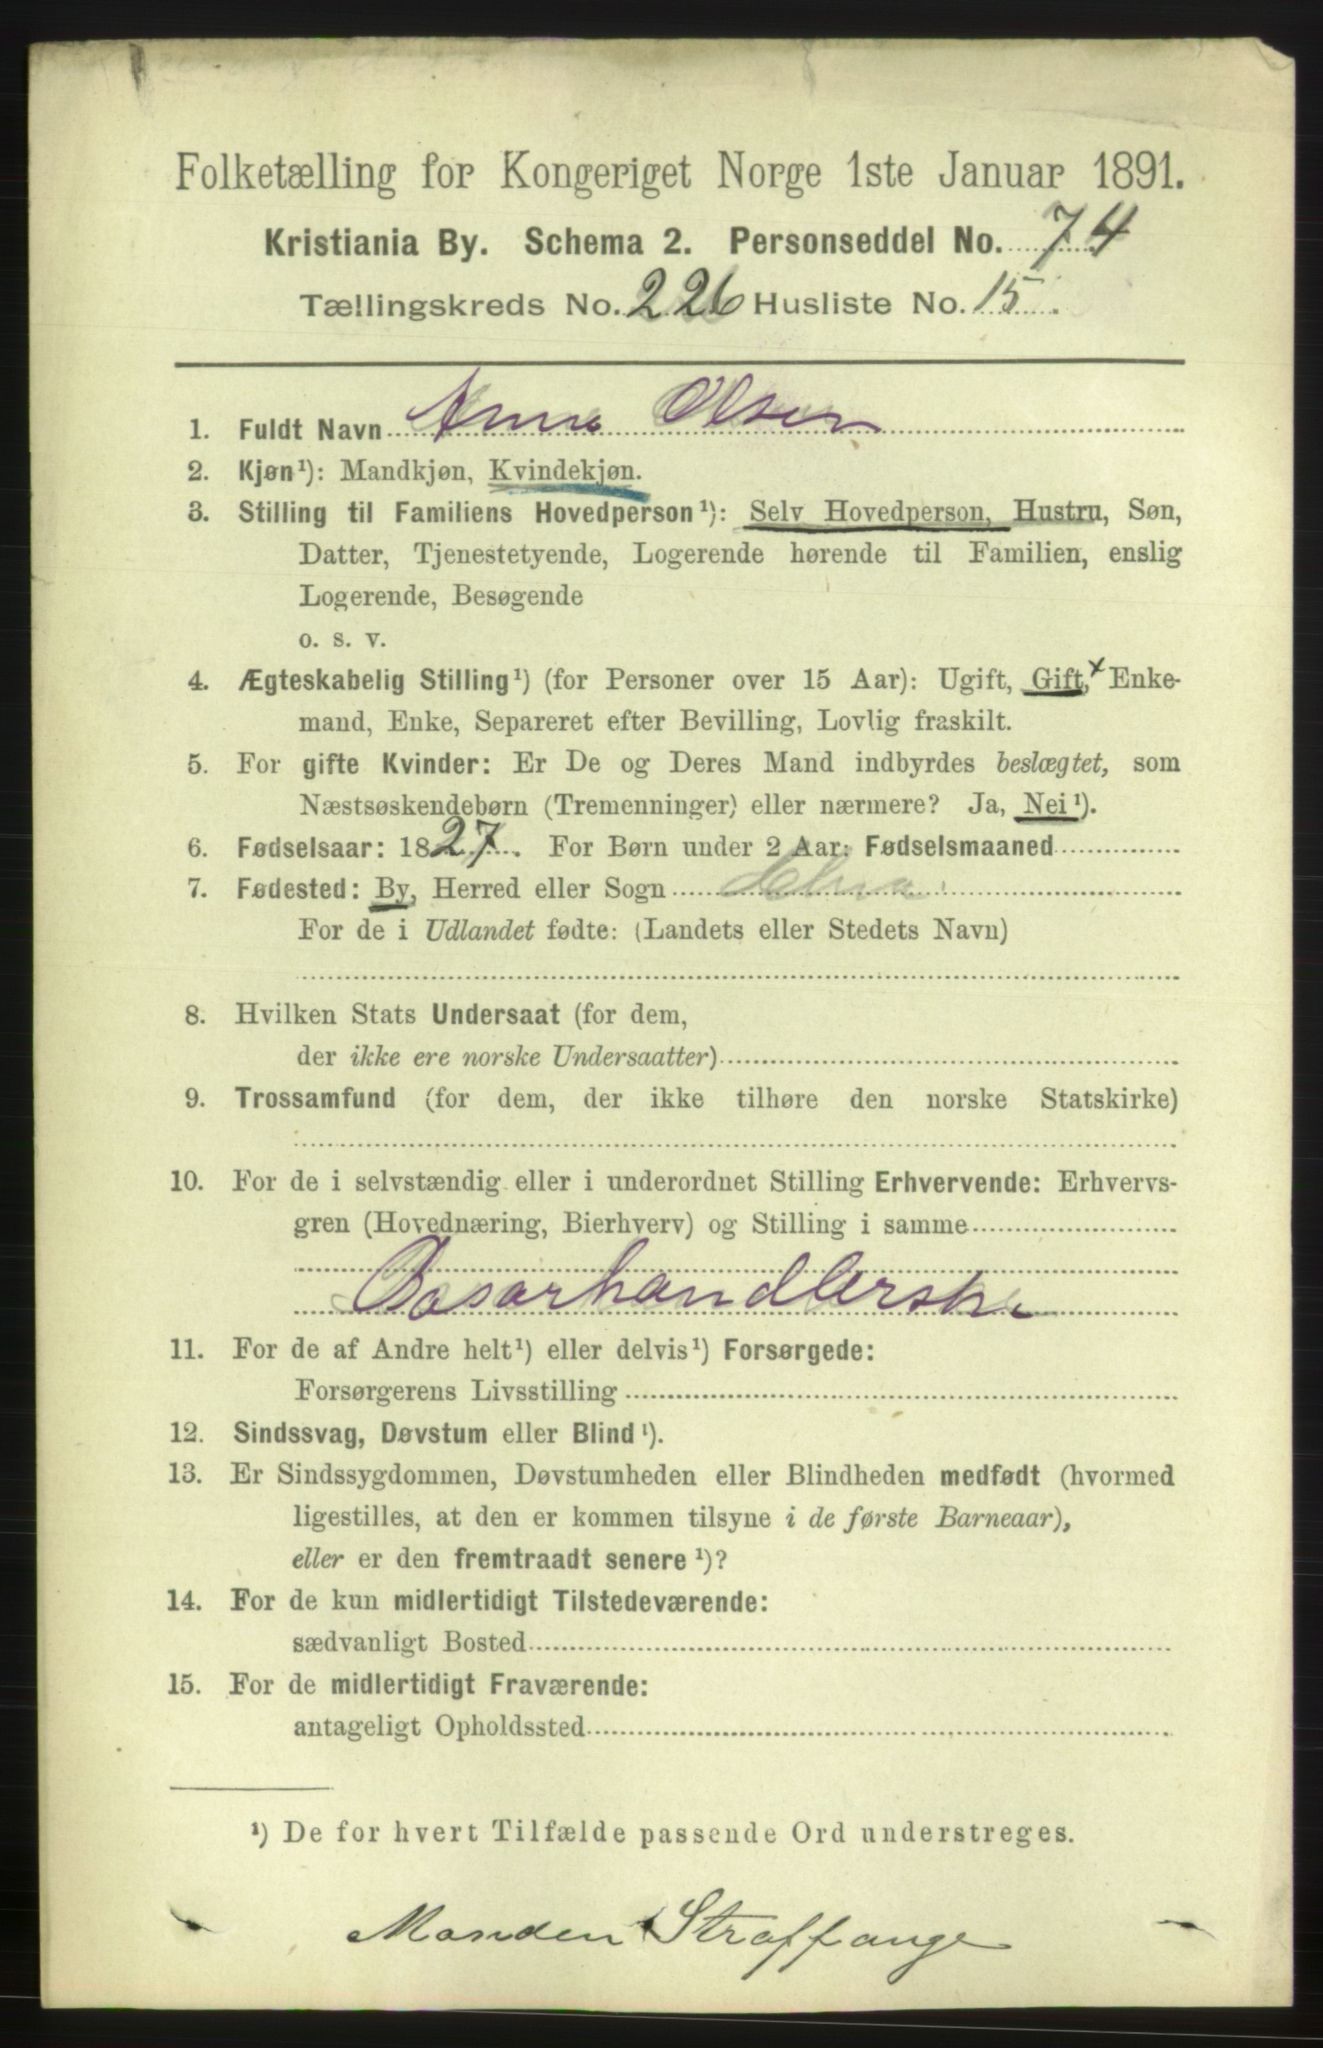 Folketælling for Kongeriget Norge 1ste Januar 1891.
Kristiania By. Schema 2. Personseddel No. 74
Tællingskreds No. 226 Husliste No. 15.
1. Fuldt Navn Anna Olsen
2. Kjøn¹): Mandkjøn, Kvindekjøn.
3. Stilling til Familiens Hovedperson¹): Selv Hovedperson, Hustru, Søn,
Datter, Tjenestetyende, Logerende hørende til Familien, enslig
Logerende, Besøgende
o. s. v.
4. Ægteskabelig Stilling¹) (for Personer over 15 Aar): Ugift, Gift,ˣ Enke-
mand, Enke, Separeret efter Bevilling, Lovlig fraskilt.
5. For gifte Kvinder: Er De og Deres Mand indbyrdes beslægtet, som
Næstsøskendebørn (Tremenninger) eller nærmere? Ja, Nei¹).
6. Fødselsaar: 1827. For Børn under 2 Aar: Fødselsmaaned
7. Fødested: By, Herred eller Sogn
For de i Udlandet fødte: (Landets eller Stedets Navn)
8. Hvilken Stats Undersaat (for dem,
der ikke ere norske Undersaatter)
9. Trossamfund (for dem, der ikke tilhøre den norske Statskirke)
10. For de i selvstændig eller i underordnet Stilling Erhvervende: Erhvervs-
gren (Hovednæring, Bierhverv) og Stilling i samme
Basarhandlerske
11. For de af Andre helt¹) eller delvis¹) Forsørgede:
Forsørgerens Livsstilling
12. Sindssvag, Døvstum eller Blind¹).
13. Er Sindssygdommen, Døvstumheden eller Blindheden medfødt (hvormed
ligestilles, at den er kommen tilsyne i de første Barneaar),
eller er den fremtraadt senere¹)?
14. For de kun midlertidigt Tilstedeværende:
sædvanligt Bosted
15. For de midlertidigt Fraværende:
antageligt Opholdssted
¹) De for hvert Tilfælde passende Ord understreges.
Manden Straffange